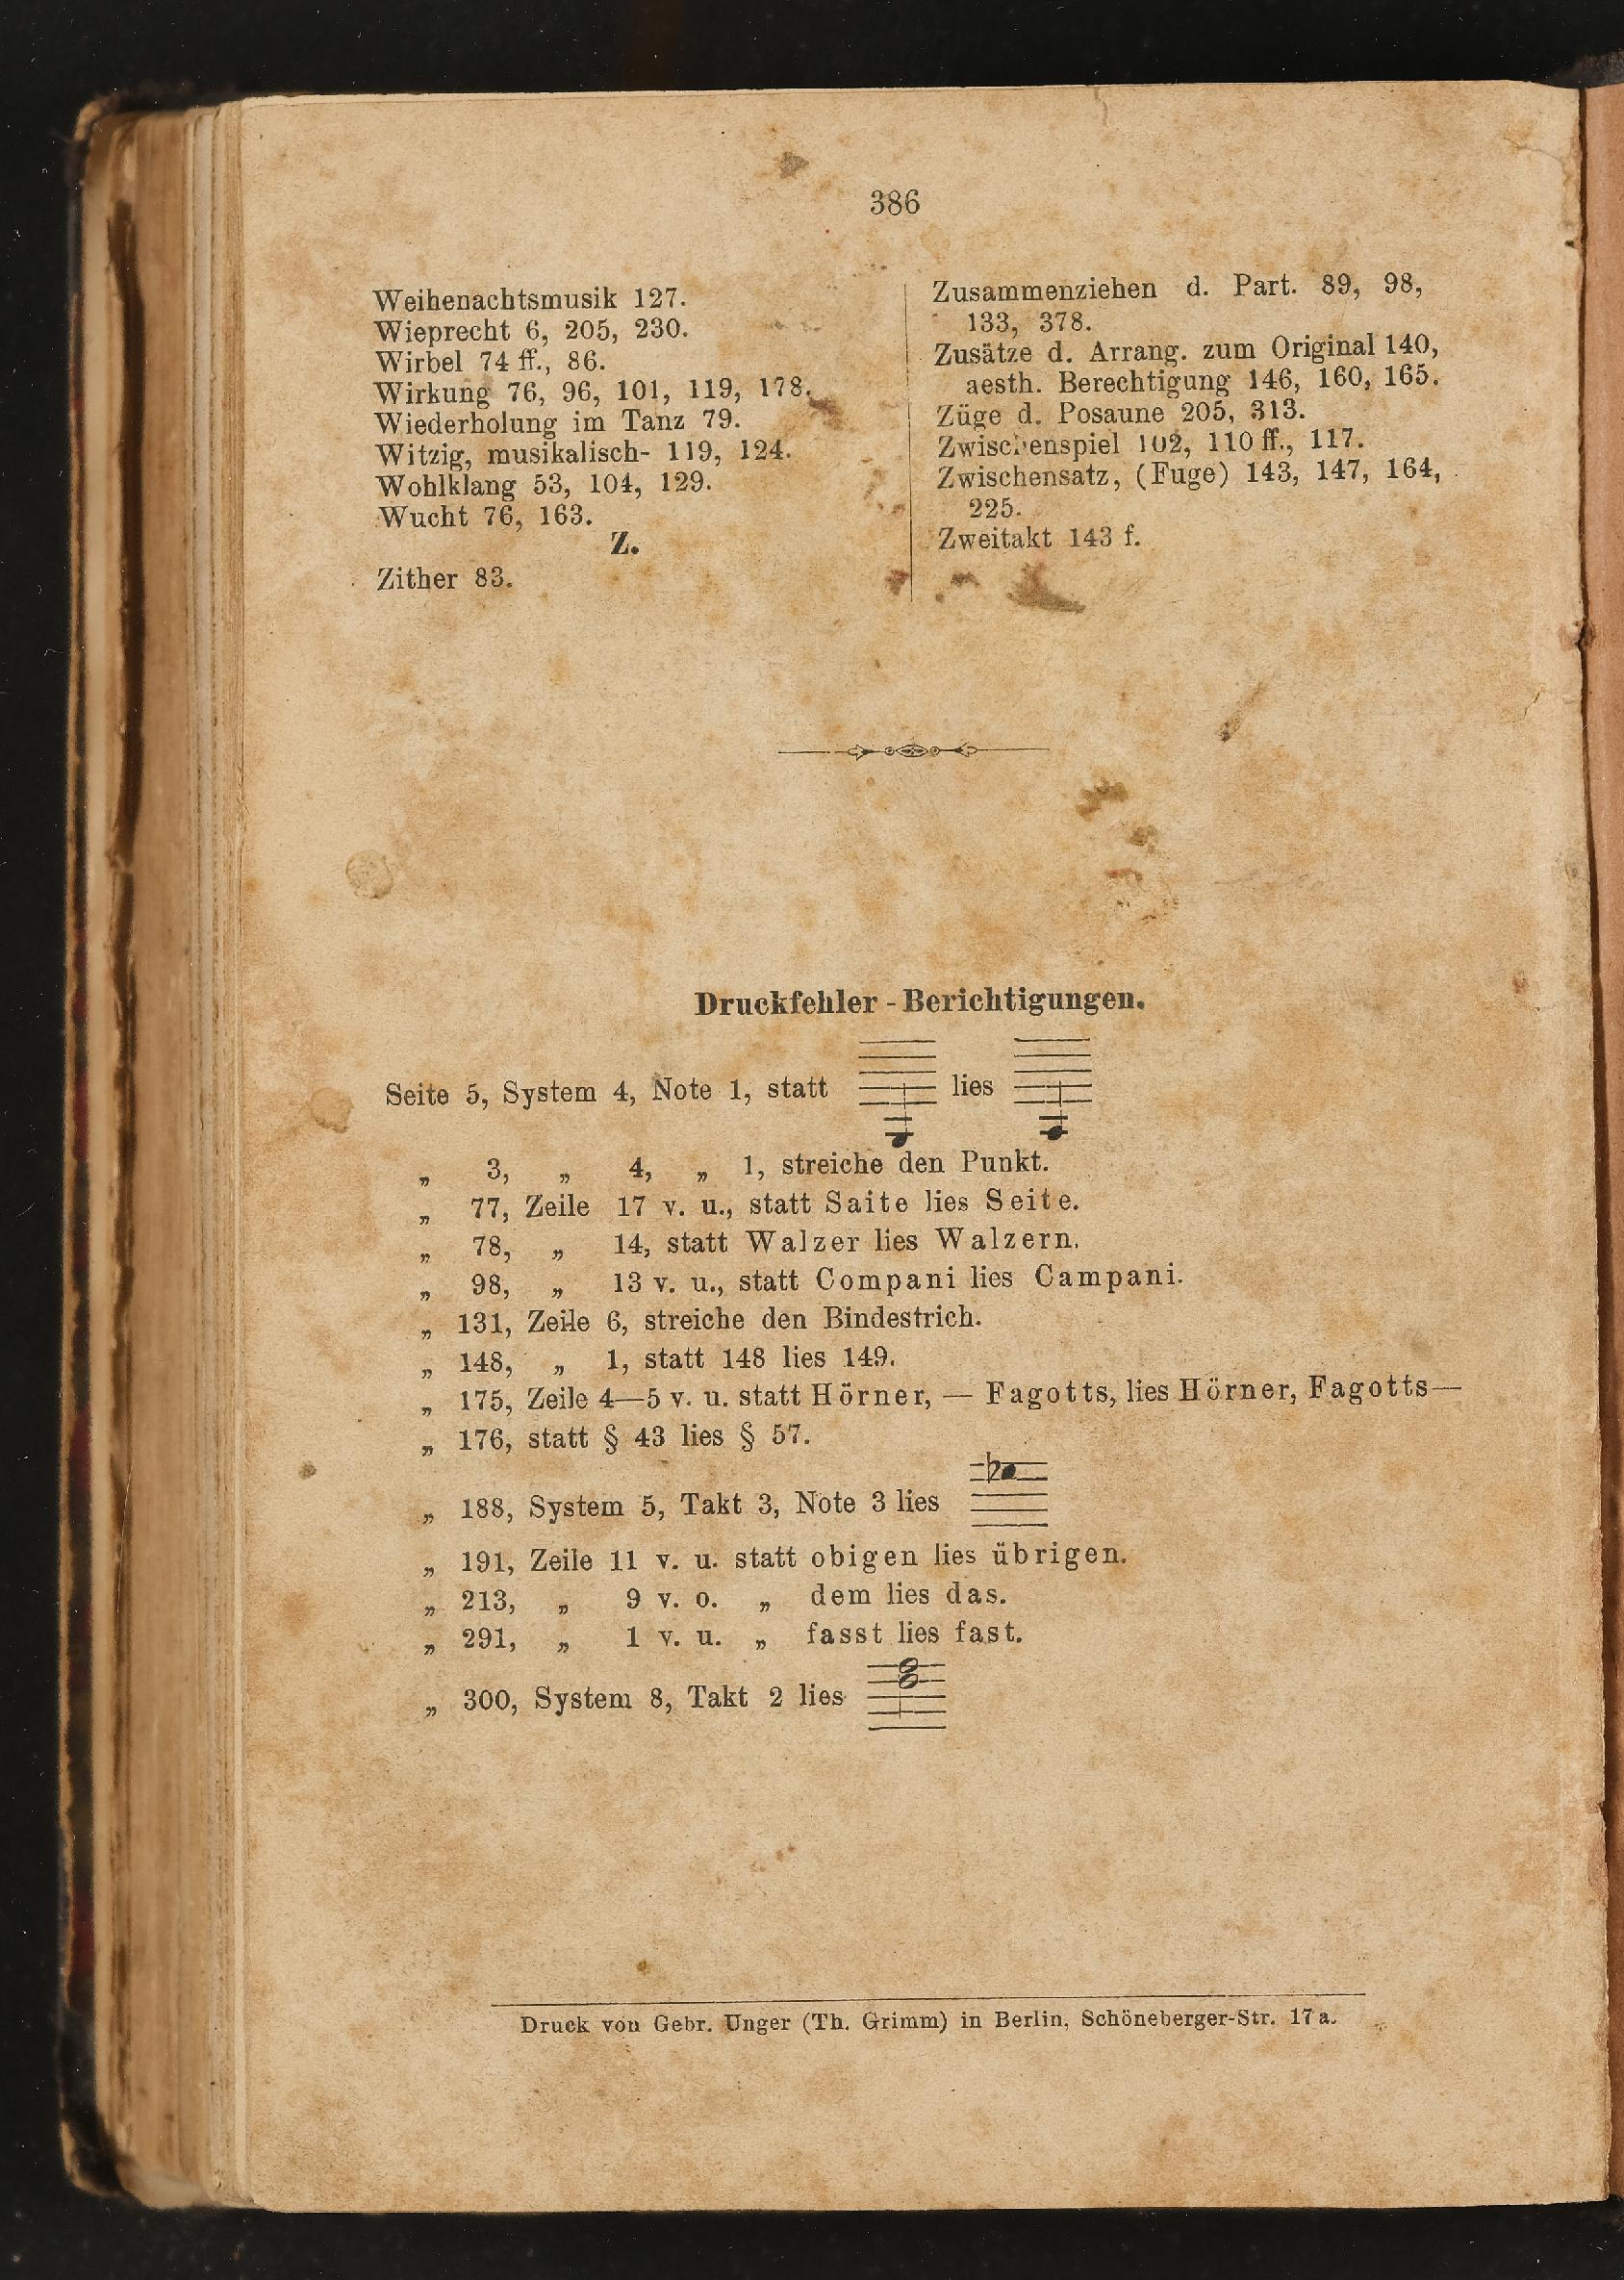 386
Weihenachtsmusik 127.
Wieprecht 6, 205, 230.
Wirbel 74 ff., 86.
Wirkung 76, 96, 101, 119, 178.
Wiederholung im Tanz 79.
Witzig, musikalisch- 119, 124.
Wohlklang 53, 104, 129.
Wucht 76, 163.
Z.
Zither 83.
Zusammenziehen d. Part. 89, 98,
133, 378.
Zusätze d. Arrang. zum Original 140,
aesth. Berechtigung 146, 160, 165.
Züge d. Posaune 205, 313.
Zwischenspiel 102, 110 ff., 117.
Zwischensatz, (Fuge) 143, 147, 164,
225.
Zweitakt 143 f.
Druckfehler-Berichtigungen.
Seite 5, System 4, Note 1, statt lies
„ 3, „ 4, „ 1, streiche den Punkt.
„ 77, Zeile 17 v. u., statt Saite lies Seite.
„ 78, „ 14, statt Walzer lies Walzern.
„ 98, „ 13 v. u., statt Compani lies Campani.
„ 131, Zeile 6, streiche den Bindestrich.
„ 148, „ 1, statt 148 lies 149.
„ 175, Zeile 4—5 v. u. statt Hörner, — Fagotts, lies Hörner, Fagotts—
„ 176, statt § 43 lies § 57.
„ 188, System 5, Takt 3, Note 3 lies
„ 191, Zeile 11 v. u. statt obigen lies übrigen.
„ 213, „ 9 v. o. „ dem lies das.
„ 291, „ 1 v. u. „ fasst lies fast.
„ 300, System 8, Takt 2 lies
Druck von Gebr. Unger (Th. Grimm) in Berlin, Schöneberger-Str. 17a.